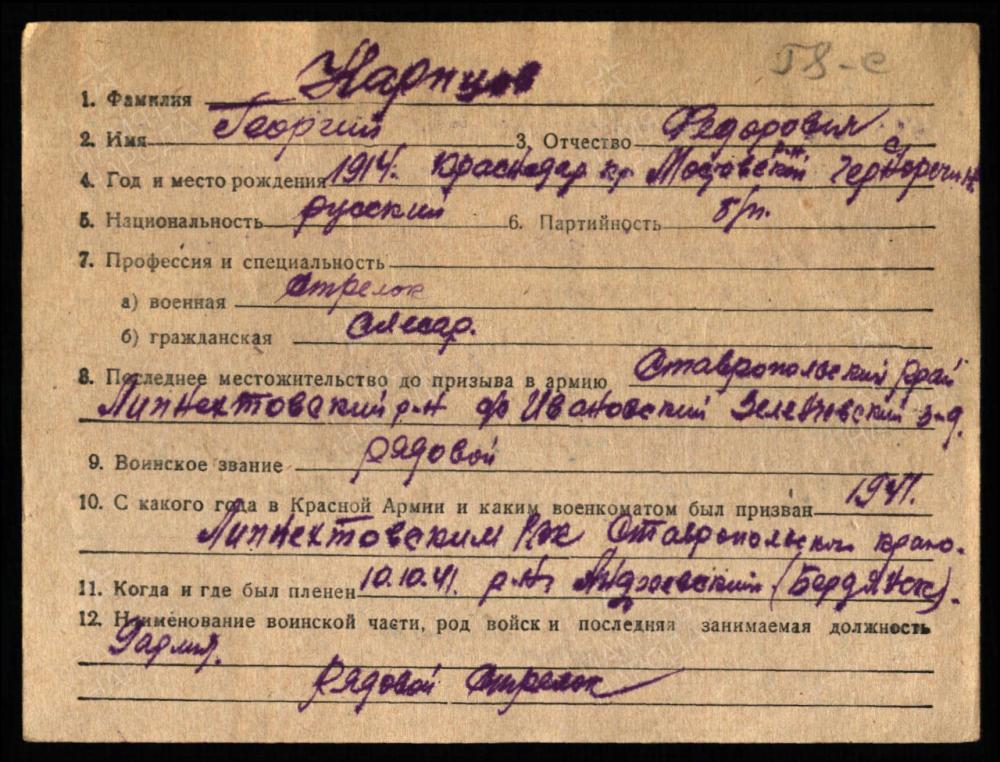 Г8-с
1. Фамилия Карпцов
2. Имя Георгий 3. Отчество Федорович
4. Год и место рождения 1914. Краснодар кр Мостовской р-н с. Чернореченск
5. Национальность русский 6. Партийность б/п.
7. Профессия и специальность
а) военная стрелок
б) гражданская слесар.
8. Последнее местожительство до призыва в армию Ставропольский край
р-н Ивановский з-д.
9. Воинское звание рядовой
10. С какого года в Красной Армии и каким военкоматом был призван 1941.
РВК Ставропольского краю.
11. Когда и где был пленен 10.10.41. р.н. (Бердянск).
12. Наименование воинской части, род войск и последняя занимаемая должность
9 армия.
рядовой стрелок